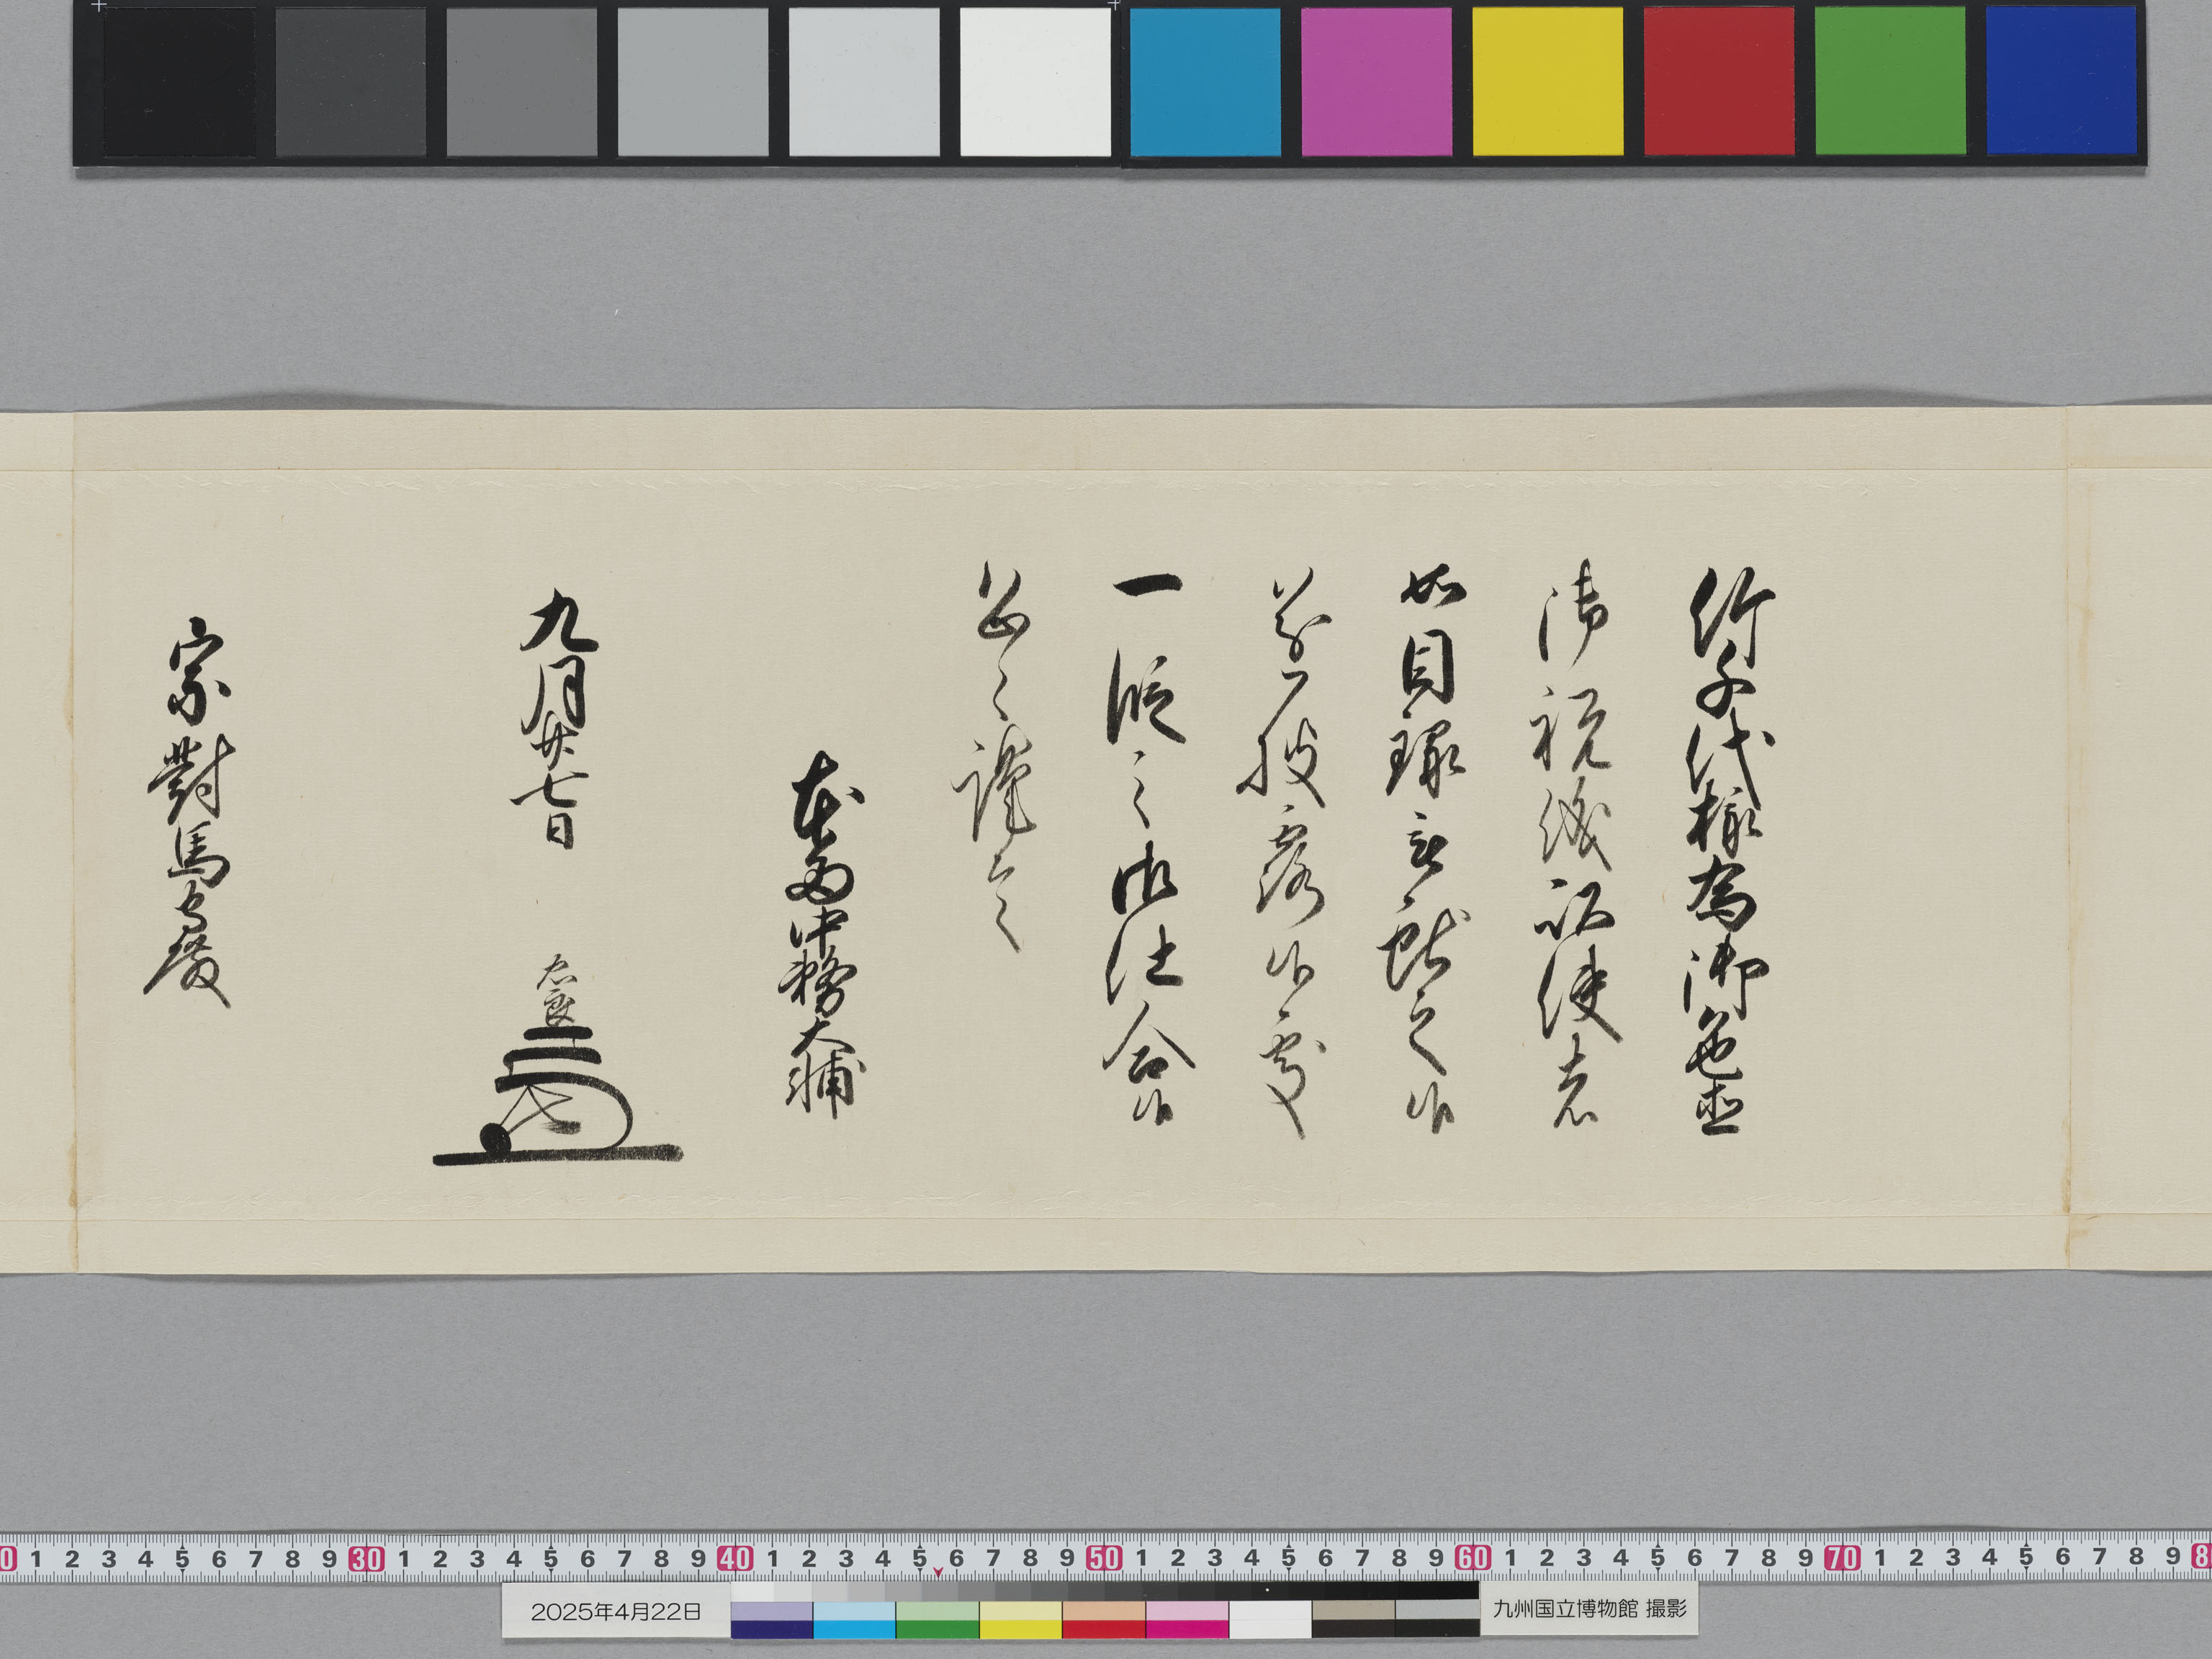 竹千代様為御色直
御祝儀以使者
如目録被献之候
披露候處
一段之御仕合候
恐々謹言
本多中務大輔
九月廿七日 忠良
宗對馬守殿
0 1 2 3 4 5 6 7 8 9 30 1 2 3 4 5 6 7 8 9 40 1 2 3 4 5 6 7 8 9 50 1 2 3 4 5 6 7 8 9 60 1 2 3 4 5 6 7 8 9 70 1 2 3 4 5 6 7 8 9 8
2025年4月22日
九州国立博物館 撮影